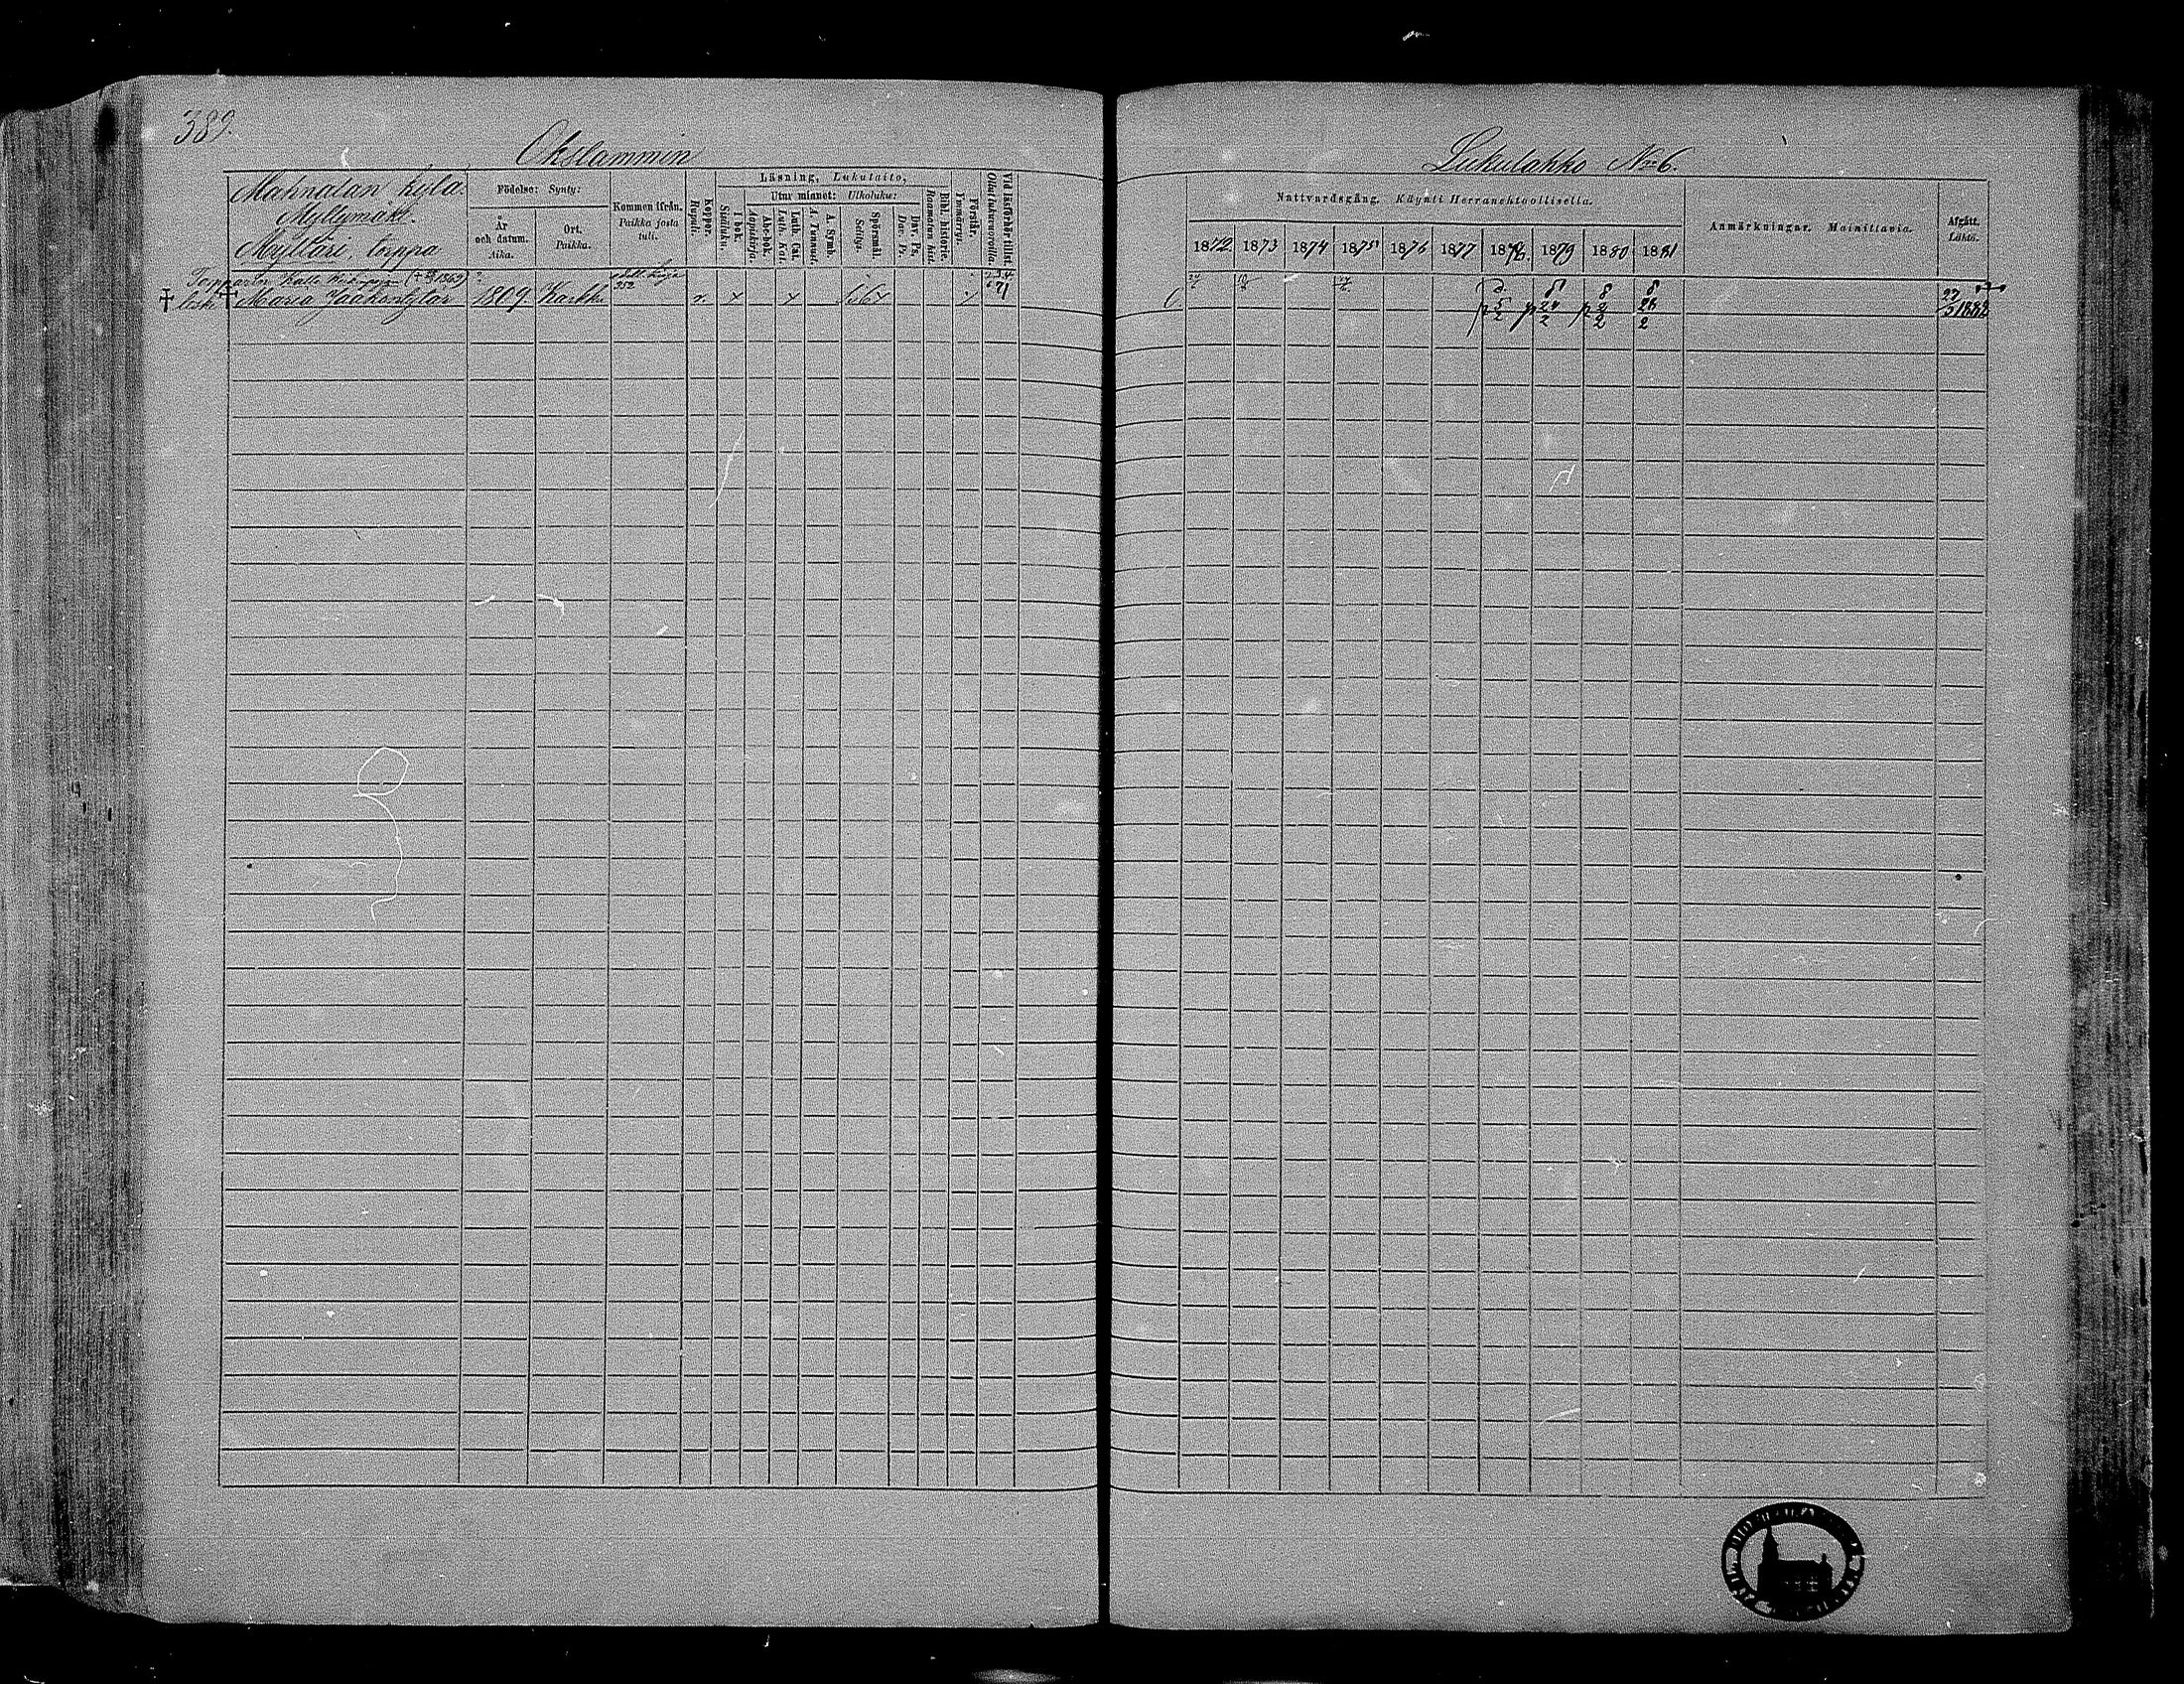 389.
Okslammin
Lukulahko No 6.
Mahnalan kylä
Myllymäki.
Mylläri, torppa
Födelse: Synty:
År och datum. Aika.
Ort. Paikka.
Kommen ifrån. Paikka josta tuli.
Koppor. Rupuli.
Läsning, Lukutaito,
I bok. Sisäluku.
Utur minnet: Ulkoluku:
Abc-bok. Aapiskirja.
Luth. Cat. Luth. Kat.
A. Symb. A. Tunnust.
Spörsmål. Selitys.
Dav. Ps. Dav. Ps.
Bibl. historie. Raamatun hist.
Förstår. Ymmärrys.
Vid läsförhör tillst. Ollut lukuvuorolla.
Nattvardsgång. Käynti Herranehtoollisella.
1872 1873 1874 1875 1876 1877 1878 1879 1880 1881
Anmärkningar. Muistettavia.
Afgått. Lähtö.
Torpparin Kalle († 1869)
lesk. Maria Jaakontytär 1809. Karkku
352
r.
71
5/2 24/2 2/2 26/2
27/5 1882